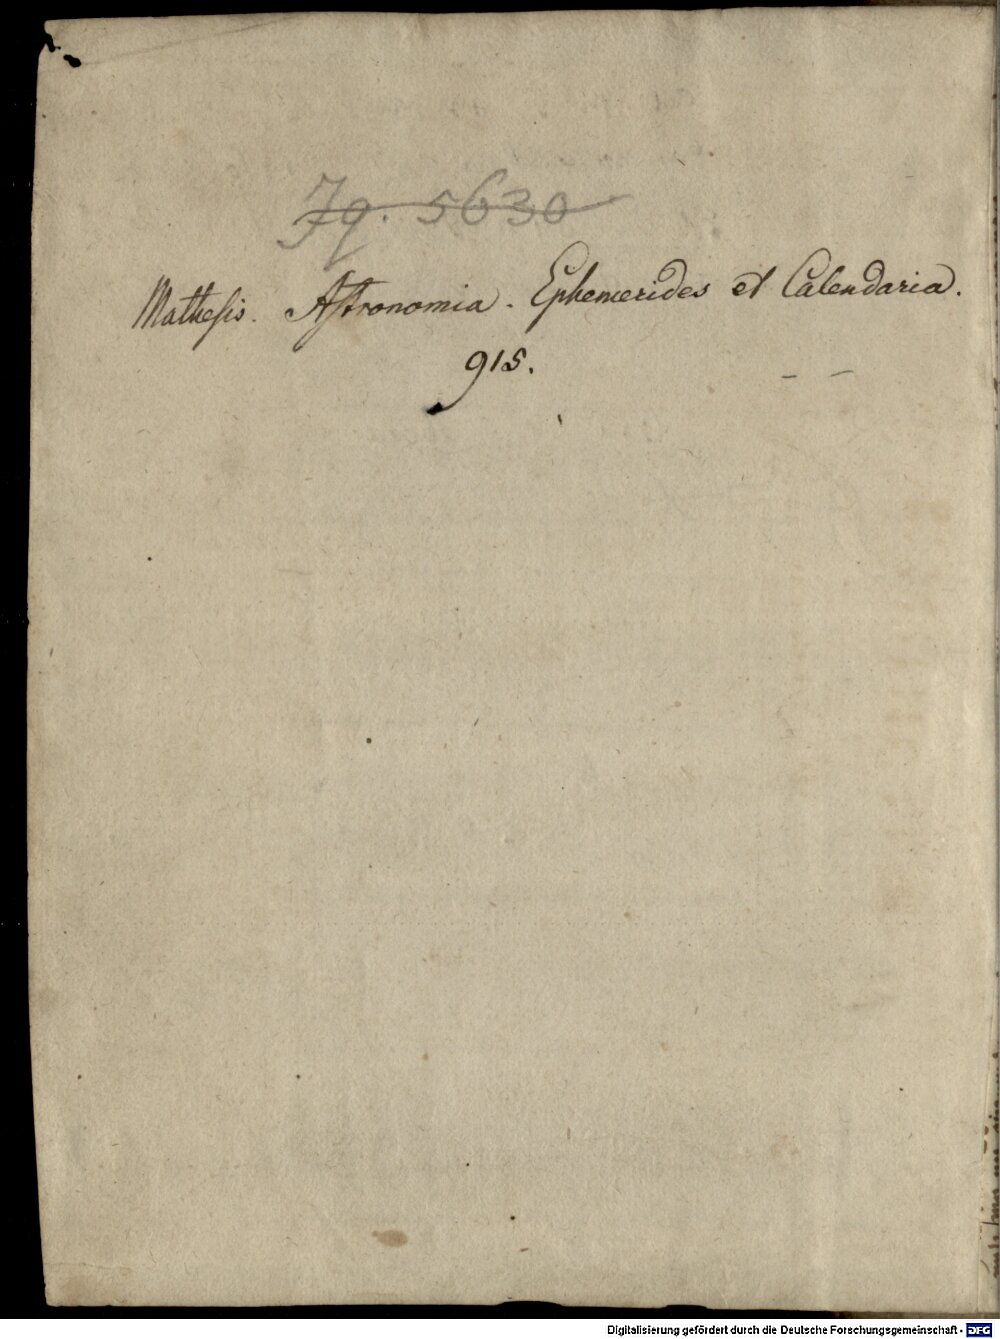 Jq. 5630
Mathesis. Astronomia. Ephemerides et Calendaria.
915.
Digitalisierung gefördert durch die Deutsche Forschungsgemeinschaft - DFG